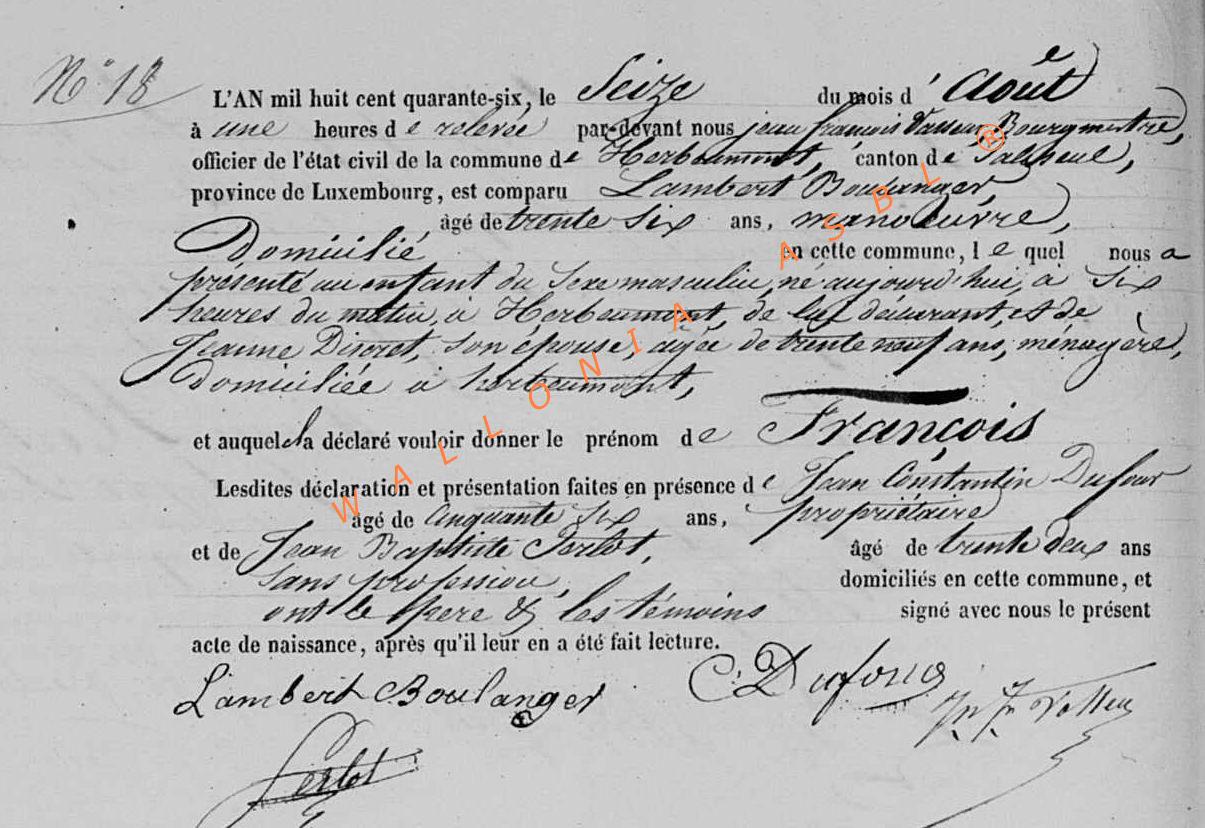 N° 18
L'AN mil huit cent quarante-six, le Seize du mois d' Août
à une heures de relevée par-devant nous jean françois Vasseur, Bourgmestre,
officier de l'état civil de la commune de Herbeumont, canton de Paliseul,
province de Luxembourg, est comparu Lambert Boulanger
âgé de trente six ans, manoeuvre,
Domicilié en cette commune, le quel nous a
présenté un enfant du Sexe masculin, né aujourd'hui, à Six
heures du matin, à Herbeumont, de lui déclarant, et de
Jeanne Discret, son épouse, agée de trente neuf ans, ménagère,
Domiciliée à herbeumont,
et auquel il a déclaré vouloir donner le prénom de François
Lesdites déclaration et présentation faites en présence de Jean Constantin Dufour
âgé de Cinquante Six ans, propriétaire
et de Jean Baptiste Perlot, âgé de trente deux ans
Sans profession, domiciliés en cette commune, et
ont le père & les témoins signé avec nous le présent
acte de naissance, après qu'il leur en a été fait lecture.
Lambert Boulanger C. Dufour
Perlot
WALLONIA ASBL ®